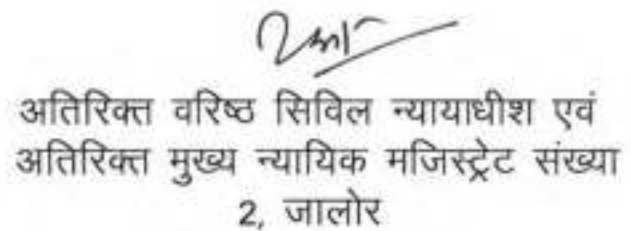 अतिरिक्त वरिष्ठ सिविल न्यायाधीश एवं
अतिरिक्त मुख्य न्यायिक मजिस्ट्रेट संख्या
2, जालोर